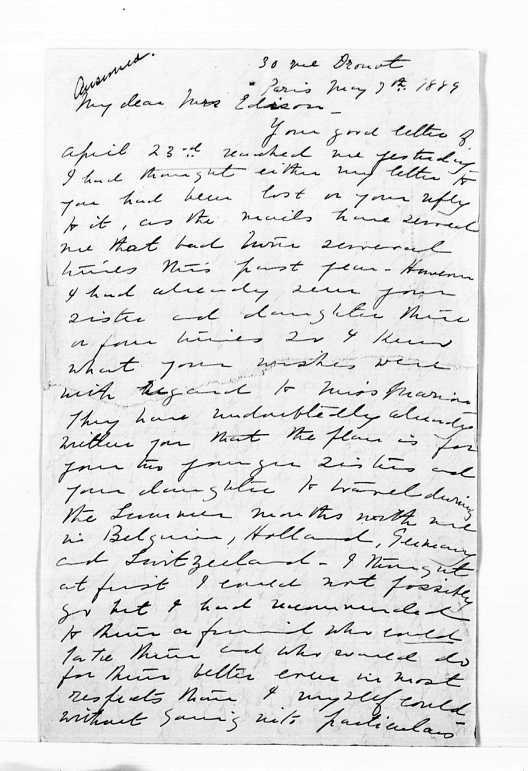 Answered.
30 rue Drouot
Paris May 7th 1889
My dear Mrs Edison —
Your good letter of
April 23rd reached me yesterday
I had thought either my letter to
you had been lost or your reply
to it, as the mails have served
me that bad turn several
times this past year — However
I had already seen your
sister and daughter three
or four times so I knew
what your wishes were
with regard to Miss Marion
They have undoubtedly already
written you that the plan is for
your two younger sisters and
your daughter to travel during
the Summer months with me
in Belgium, Holland, Germany
and Switzerland — I thought
at first I could not possibly
go but I had recommended
to them a friend who could
take them and who would do
for them better even in most
respects than I myself could —
without going into particulars